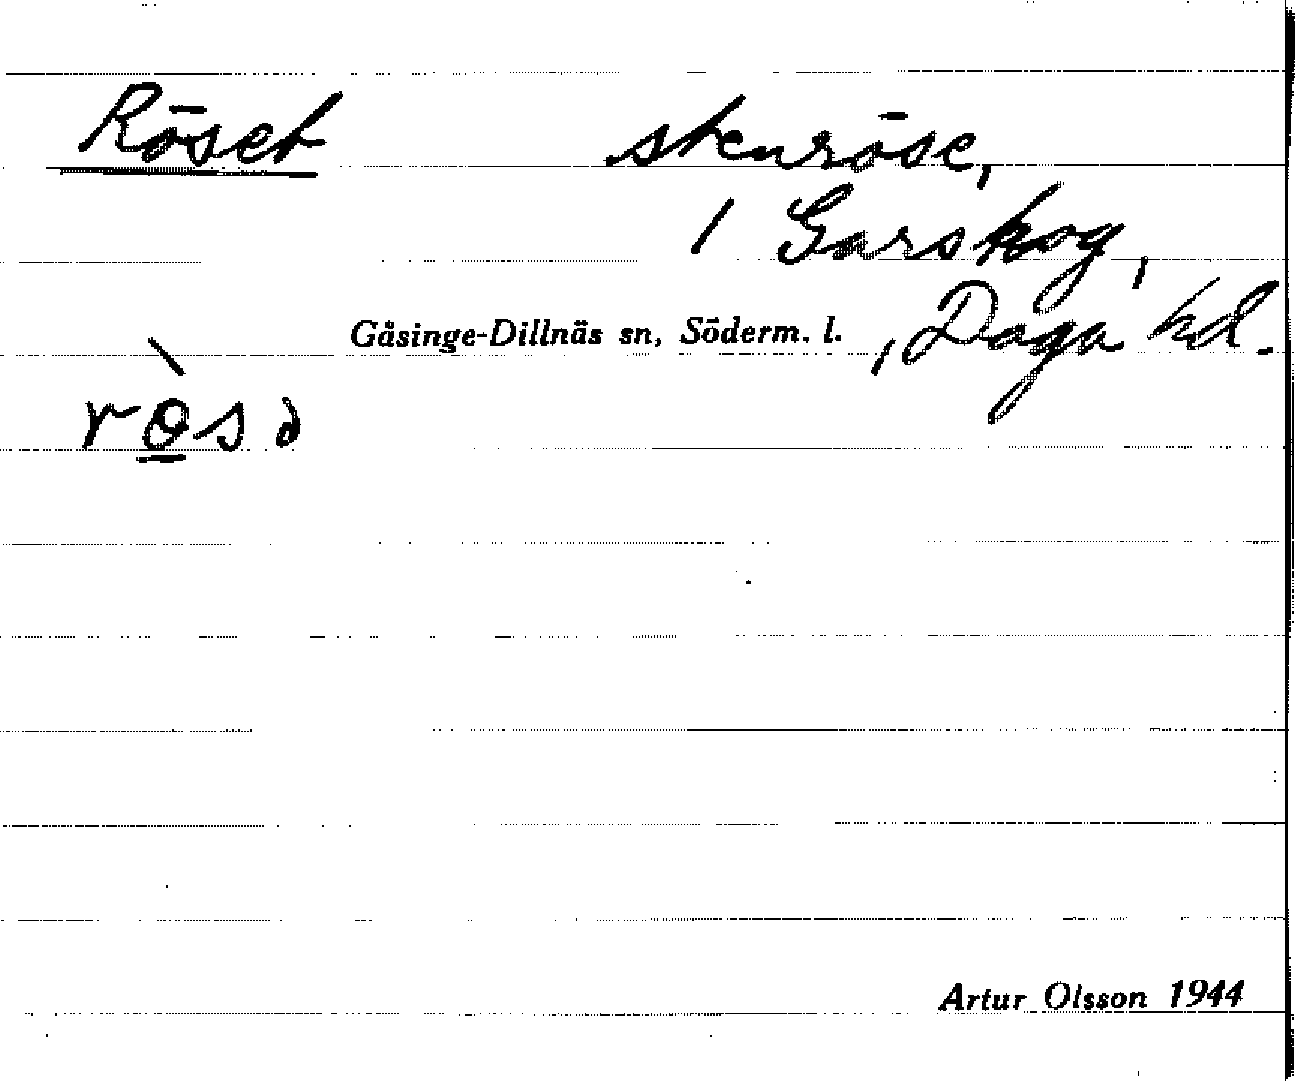 Röset stenröse,
/ Garskog,
Gåsinge-Dillnäs sn, Söderm. l. , Daga hd.
rösə
Artur Olsson 1944